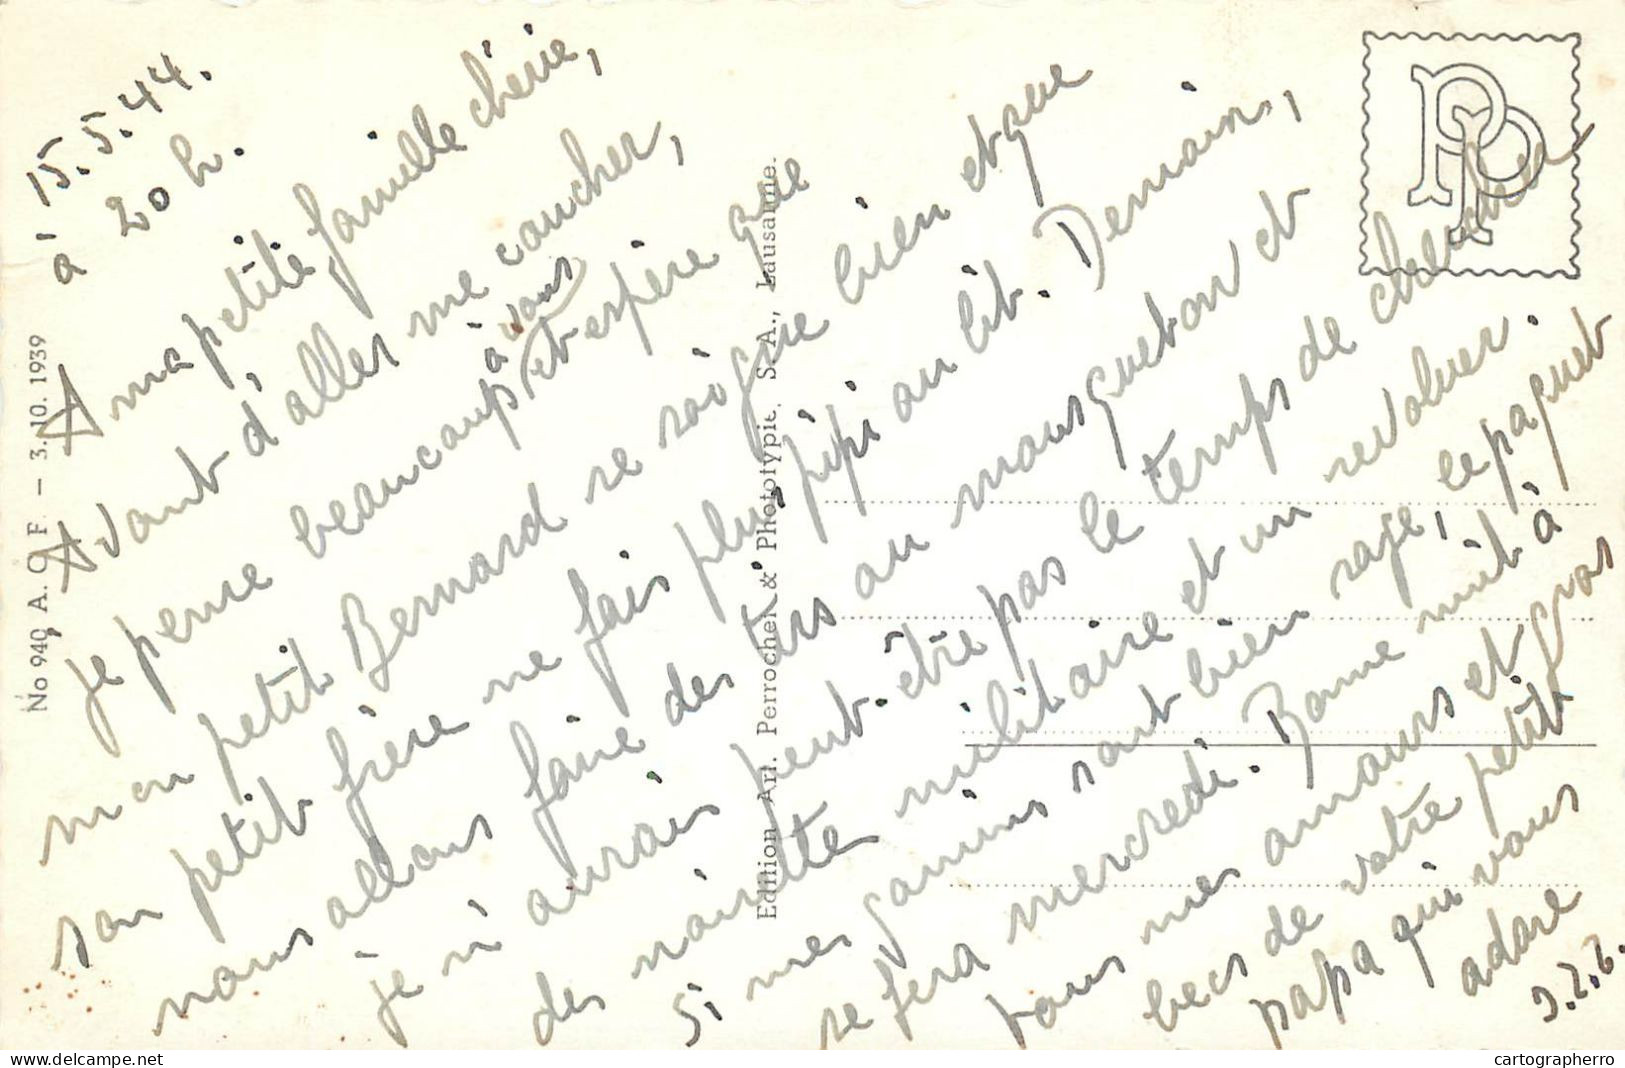 15.5.44.
à 20 h.
A ma petite famille chérie,
Avant d'aller me coucher,
je pense beaucoup à vous et espère que
mon petit Bernard se soigne bien et que
son petit frère ne fais plus pipi au lit. Demain,
nous allons faire des tirs au mousqueton et
je n'aurais peut-être pas le temps de chercher
des noisette militaire et un revolver.
Si mes gamins sont bien sage, ce paquet
se fera mercredi. Bonne nuit à
tous mes amours et gros
becs de votre petit
papa qui vous
adore
No 940 A. C. F. — 3. 10. 1939
Edition Art. Perrochet & Phototypie, S. A., Lausanne.
PP
cartographerro